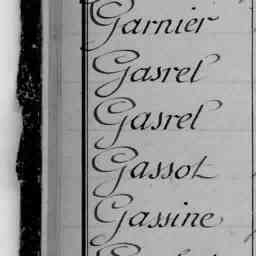 Garnier
Gasrel
Gasrel
Gassot
Gassine